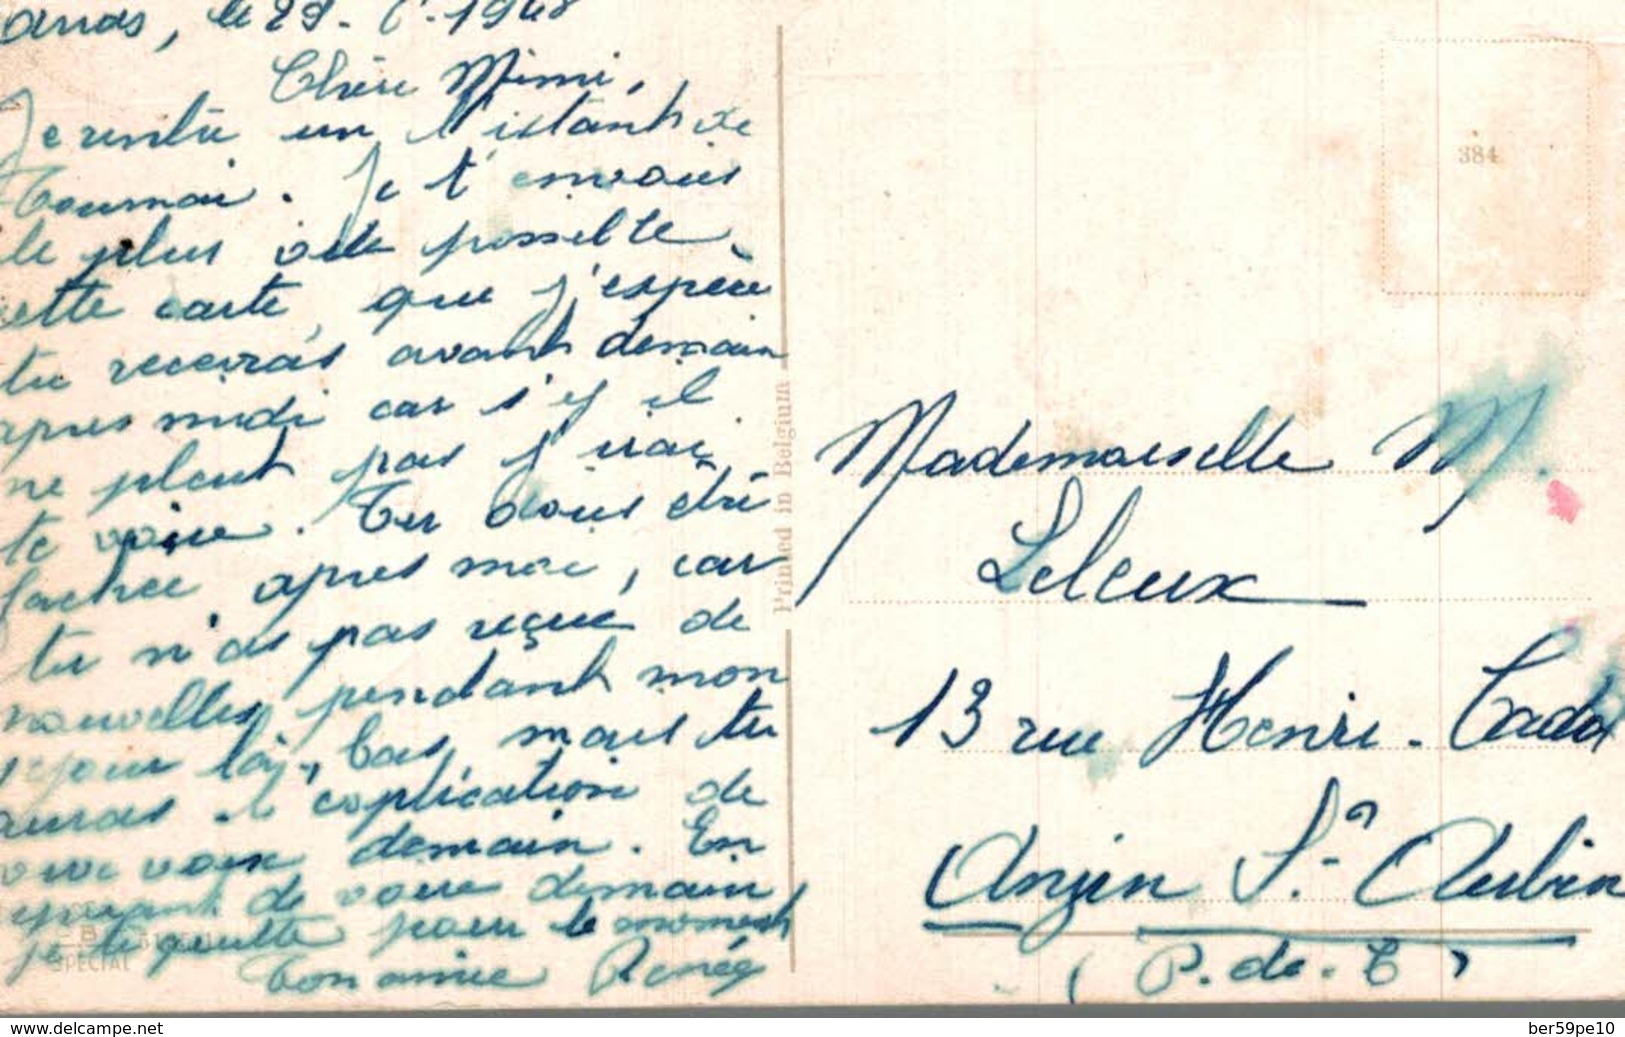 Arras, le 29-6-1948
Chère Mimi,
Je rentre un l'istant de
Tournai. Je t'envoies
le plus vite possible
cette carte, que j'espère
tu receveras avant demain
apres midi car s'y il
ne pleut pas j'irai
te voire. Tu dois etre
fachee apres moi, car
tu n'as pas reçue de
nouvelles pendant mon
sejour là-bas, mais tu
auras l'explication de
vive voix demain. En
esperant de voire demain
je te quitte pour le moment
Ton amie Renée
SPECIAL
Printed in Belgium
384
Mademoiselle M.
Leleux
13 rue Henri-Cadot
Anzin St-Aubin
(P.-de-C)
www.delcampe.net
ber59pe10